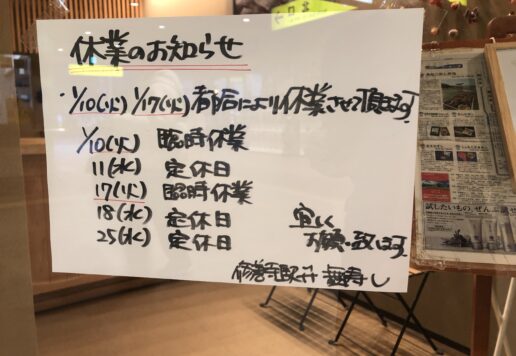 休業のお知らせ
・1/10(火) 1/17(火) 都合により休業させて頂きます
1/10(火) 臨時休業
11(水) 定休日
17(火) 臨時休業
18(水) 定休日
25(水) 定休日
宜しく
お願い致します
修善寺駅弁 舞寿し
試したいもの、ぜんぶ